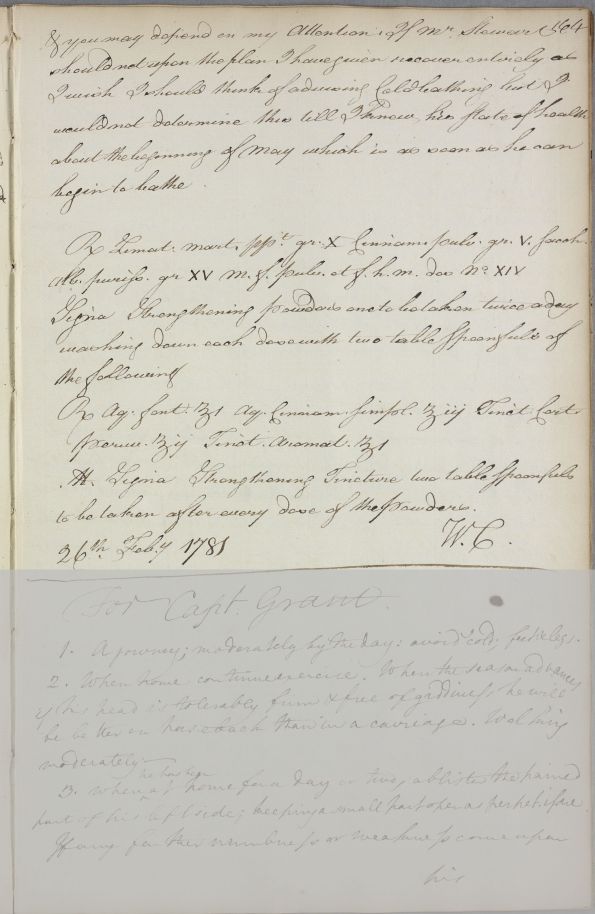 & you may depend on my Attention: If Mr. Stewart (504
should not upon the plan I have given recover entirely as
I wish I should think of advising Cold bathing but I
would not determine this till I know his state of health
about the beginning of May which is as soon as he can
begin to bathe.
R Limat. mart. ppt. gr. X Cinnam. pulv. gr. V. Sacch.
Alb. puriss. gr XV m. f. pulv. et f. h. m. dos No XIV
Signa Strengthening Powders one to be taken twice a day
washing down each dose with two table Spoonfuls of
the following
R Aq. font. ℥1 Aq. Cinnam. Simpl. ℥iij Tinct. Cort.
Peruv. ℥ij Tinct. Aromat. ℥1
M. Signa Strengthening Tincture two table Spoonfuls
to be taken after every dose of the Powders.
26th. Feby 1781 W. C.
For Capt. Grant.
1. A journey; moderately by the day: avoid cold, feet & legs.
2. When home continue exercise. When the season advances
if his head is tolerably firm & free of giddiness he will
be better on horseback than in a carriage. Walking
moderately
he has been
3. When at home for a day or two, a blister the pained
part of his left side; keeping a small part open a perpet. issue.
If any farther numbness or weakness come upon
his